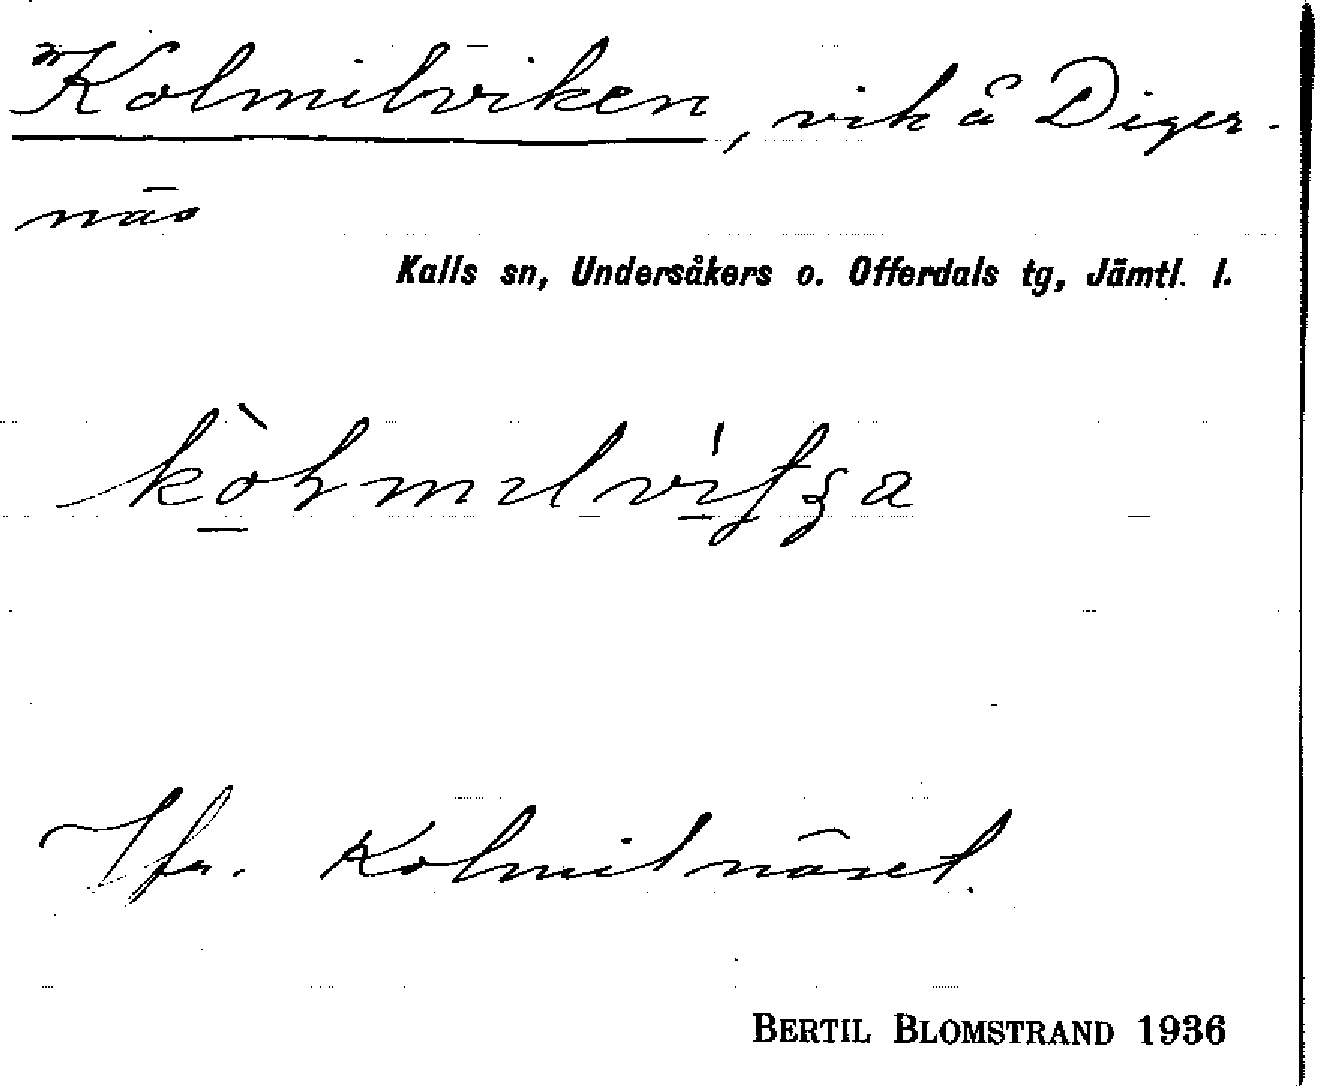 Kolmilviken, vik å Diger-
näs
Kalls sn, Undersåkers o. Offerdals tg, Jämtl. l.
Jfr. Kolmilnäset.
BERTIL BLOMSTRAND 1936